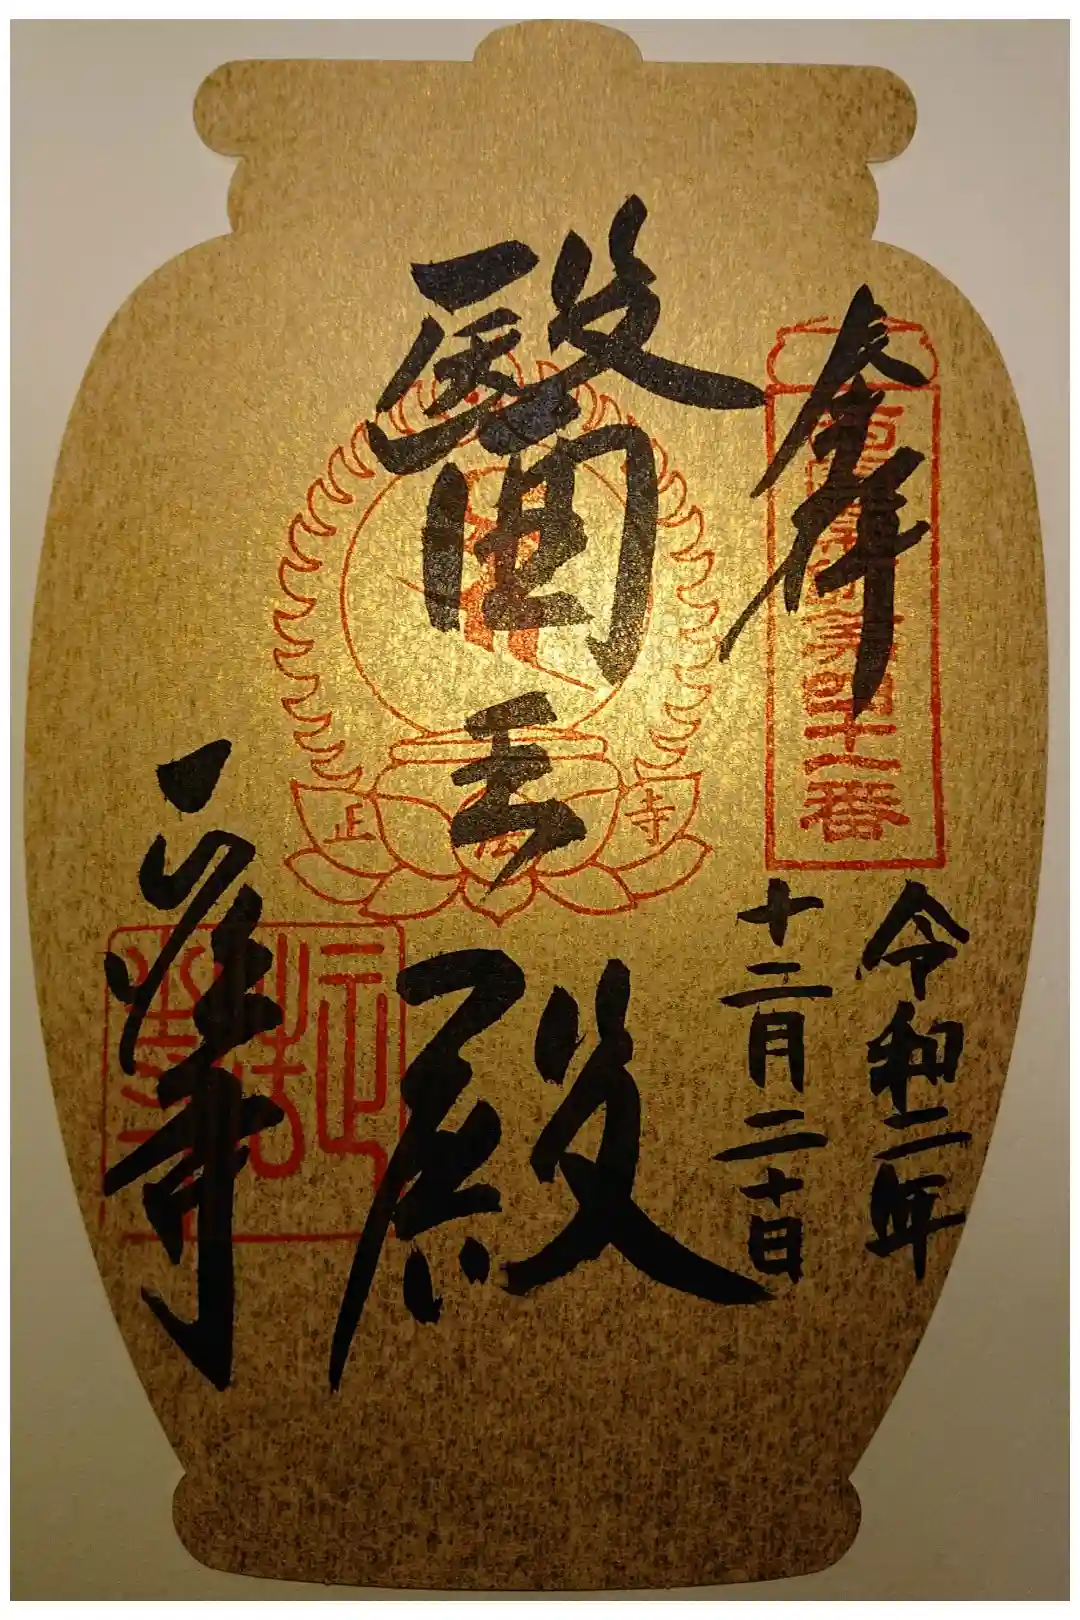 奉拝
四十一番
令和二年
十二月二十日
醫王殿
正法寺
正法寺